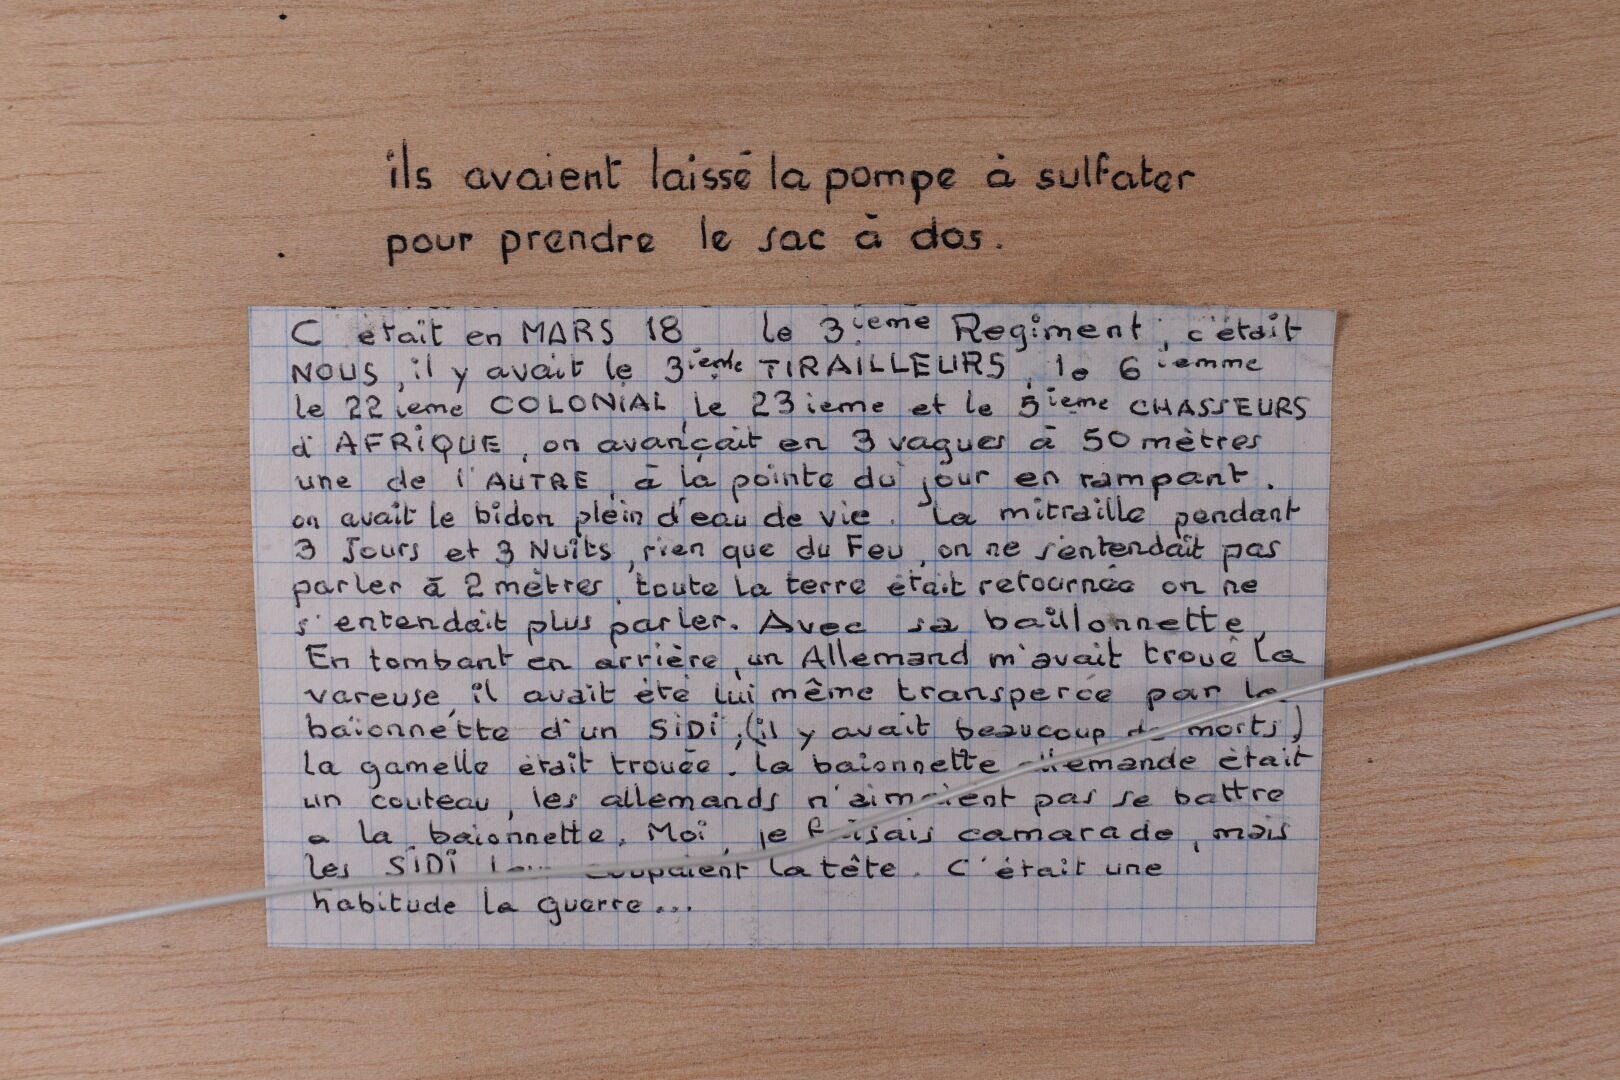 ils avaient laissé la pompe à sulfater
pour prendre le sac à dos.
C'était en MARS 18 le 3ième Regiment, c'était
NOUS, il y avait le 3ieme TIRAILLEURS, le 6 iemme
le 22 ieme COLONIAL, le 23 ieme et le 5ieme CHASSEURS
d'AFRIQUE, on avançait en 3 vagues à 50 mètres
une de l'AUTRE, à la pointe du jour en rampant.
on avait le bidon plein d'eau de vie. La mitraille pendant
3 Jours et 3 Nuits, rien que du Feu, on ne s'entendait pas
parler à 2 mètres, toute la terre était retournée on ne
s'entendait plus parler. Avec sa baillonnette,
En tombant en arrière, un Allemand m'avait troué la
vareuse, il avait été lui même transpercé par la
baïonnette d'un SIDI, (il y avait beaucoup de morts)
la gamelle était trouée. la baionnette allemande était
un couteau, les allemands n'aimaient pas se battre
a la baionnette. Moi, je faisais camarade, mais
les SIDI coupaient la tête. C'était une
habitude la guerre...